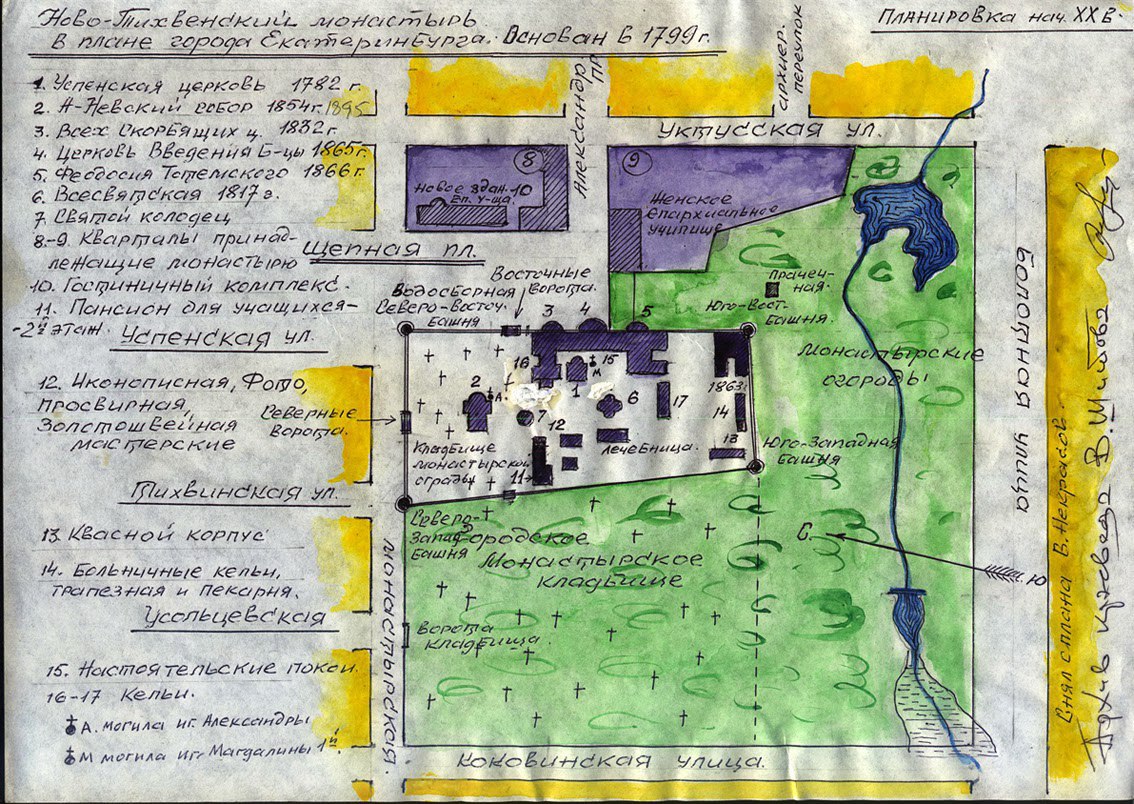 Ново-Тихвенский монастырь
в плане города Екатеринбурга. Основан в 1799 г.
Планировка нач. XX в.
1. Успенская церковь 1782 г.
2. А-Невский собор 1854 г. 1895
3. Всех Скорбящих ц. 1832 г.
4. Церковь Введения Б-цы 1865 г.
5. Феодосия Тотемского 1866 г.
6. Всесвятская 1817 г.
7 Святой колодец
8-9. Кварталы принад-
лежащие монастырю
10. Гостиничный комплекс.
11. Пансион для учащихся-
-2й этаж.
Успенская ул.
12. Иконописная, Фото,
просвирная,
Золотошвейная
мастерские
Тихвинская ул.
13. Квасной корпус
14. Больничные кельи,
трапезная и пекарня.
Усольцевская
15. Настоятельские покои.
16-17 Кельи.
А. могила иг. Александры
М могила иг. Магдалины 1й
Александр.
пр
архиер.
переулок
Уктусская ул.
8
Новое здан. 10
Еп. У-ща.
9
Женское
Епархиальное
училище
Щепная пл.
Восточные
ворота.
Водосборная
Северо-Восточ.
башня
Прачеч-
ная.
Юго-Вост.
башня.
3 4 5
16 15
М
2 А. 1 6 17
1863г.
14
7
12
13
11
Лечебница.
Северные
ворота.
Кладбище
монастырской
ограды
Юго-Западная
башня
Монастырские
огороды
Северо-
Запад
башня
Городское
Монастырское
кладбище
Ворота
кладбища.
С.
Ю
Монастырская.
Коковинская улица.
Болотная улица
Снял с плана В. Некрасов.
Архив краеведа В. Шитова